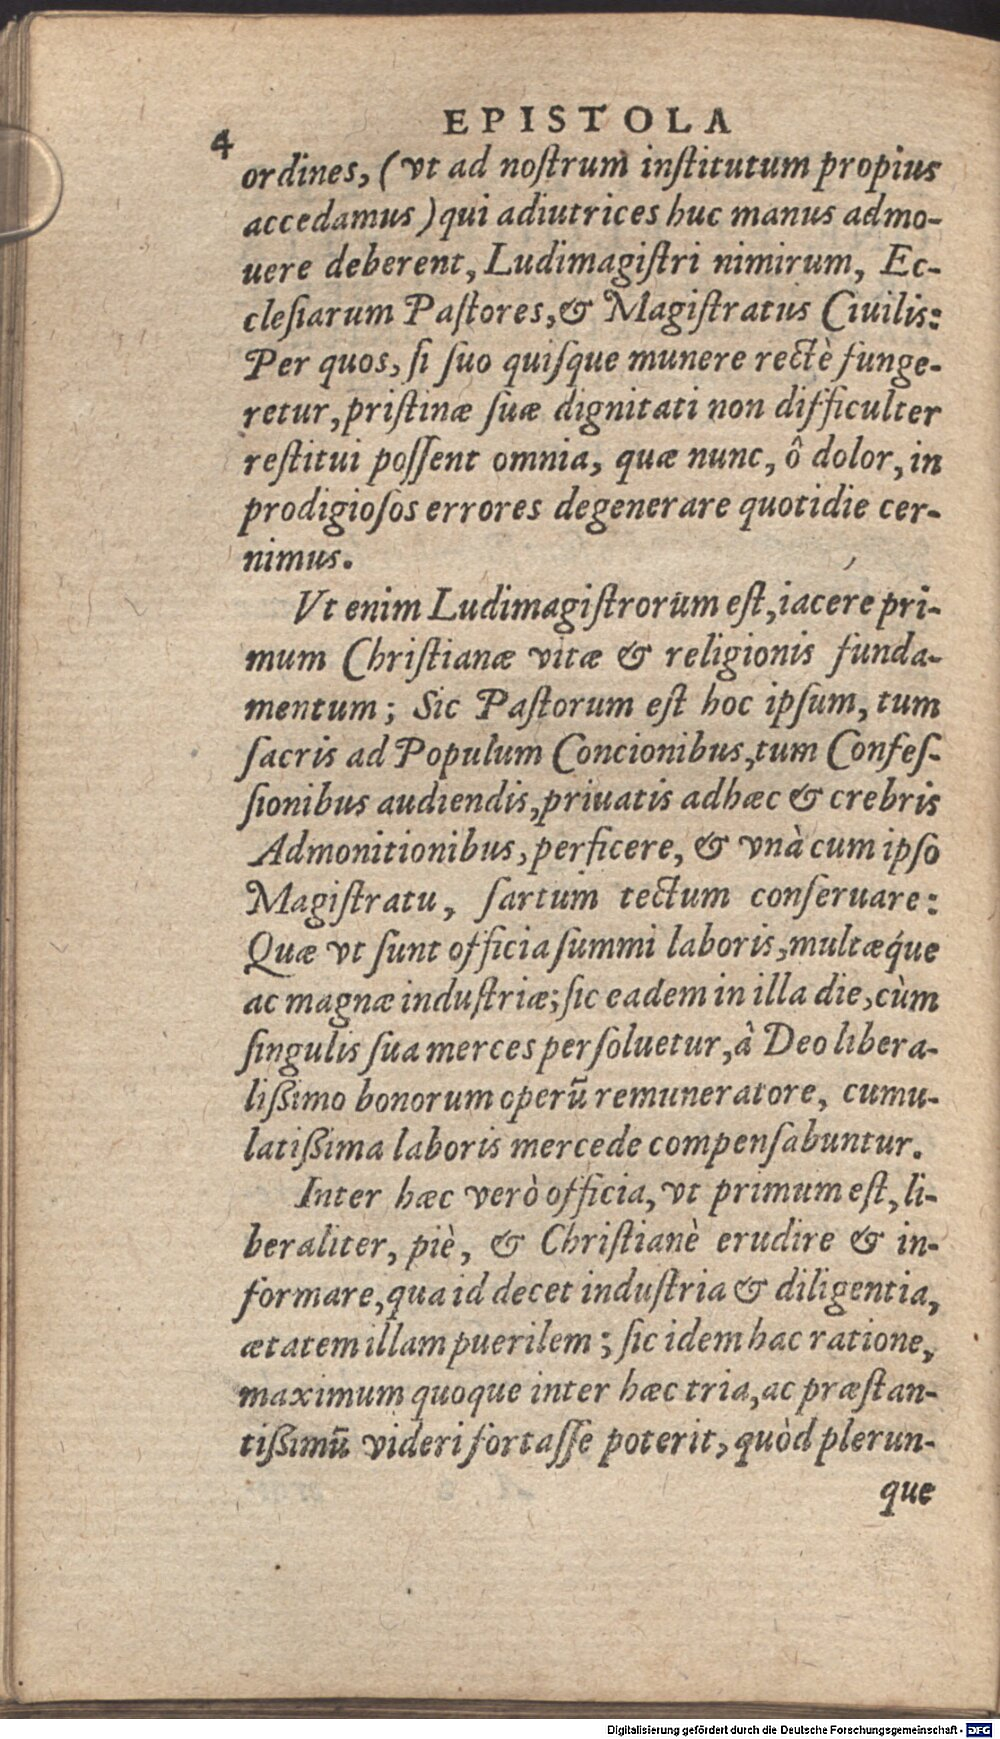 EPISTOLA
4
ordines, (vt ad noſtrum inſtitutum propius
accedamus) qui adiutrices huc manus admo-
uere deberent, Ludimagiſtri nimirum, Ec-
cleſiarum Paſtores, & Magiſtratus Ciuilis:
Per quos, ſi ſuo quiſque munere rectè funge-
retur, priſtinæ ſuæ dignitati non difficulter
reſtitui poſſent omnia, quæ nunc, ô dolor, in
prodigioſos errores degenerare quotidie cer-
nimus.
Vt enim Ludimagiſtrorum eſt, iacere pri-
mum Chriſtianæ vitæ & religionis funda-
mentum; Sic Paſtorum eſt hoc ipſum, tum
ſacris ad Populum Concionibus, tum Confeſ-
ſionibus audiendis, priuatis adhæc & crebris
Admonitionibus, perficere, & vnà cum ipſo
Magiſtratu, ſartum tectum conſeruare:
Quæ vt ſunt officia ſummi laboris, multæq́ue
ac magnæ induſtriæ; ſic eadem in illa die, cùm
ſingulis ſua merces perſoluetur, à Deo libera-
liſsimo bonorum operū remuneratore, cumu-
latiſsima laboris mercede compenſabuntur.
Inter hæc verò officia, vt primum eſt, li-
beraliter, piè, & Chriſtianè erudire & in-
formare, qua id decet induſtria & diligentia,
ætatem illam puerilem; ſic idem hac ratione,
maximum quoque inter hæc tria, ac præſtan-
tiſsimū videri fortaſſe poterit, quòd plerun-
que
Digitalisierung gefördert durch die Deutsche Forschungsgemeinschaft - DFG